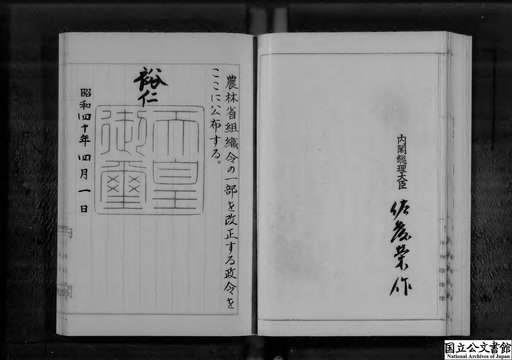 農林省組織令の一部を改正する政令を
ここに公布する。
裕仁
天皇
御璽
昭和四十年四月一日
内閣総理大臣 佐藤榮作
国立公文書館
National Archives of Japan